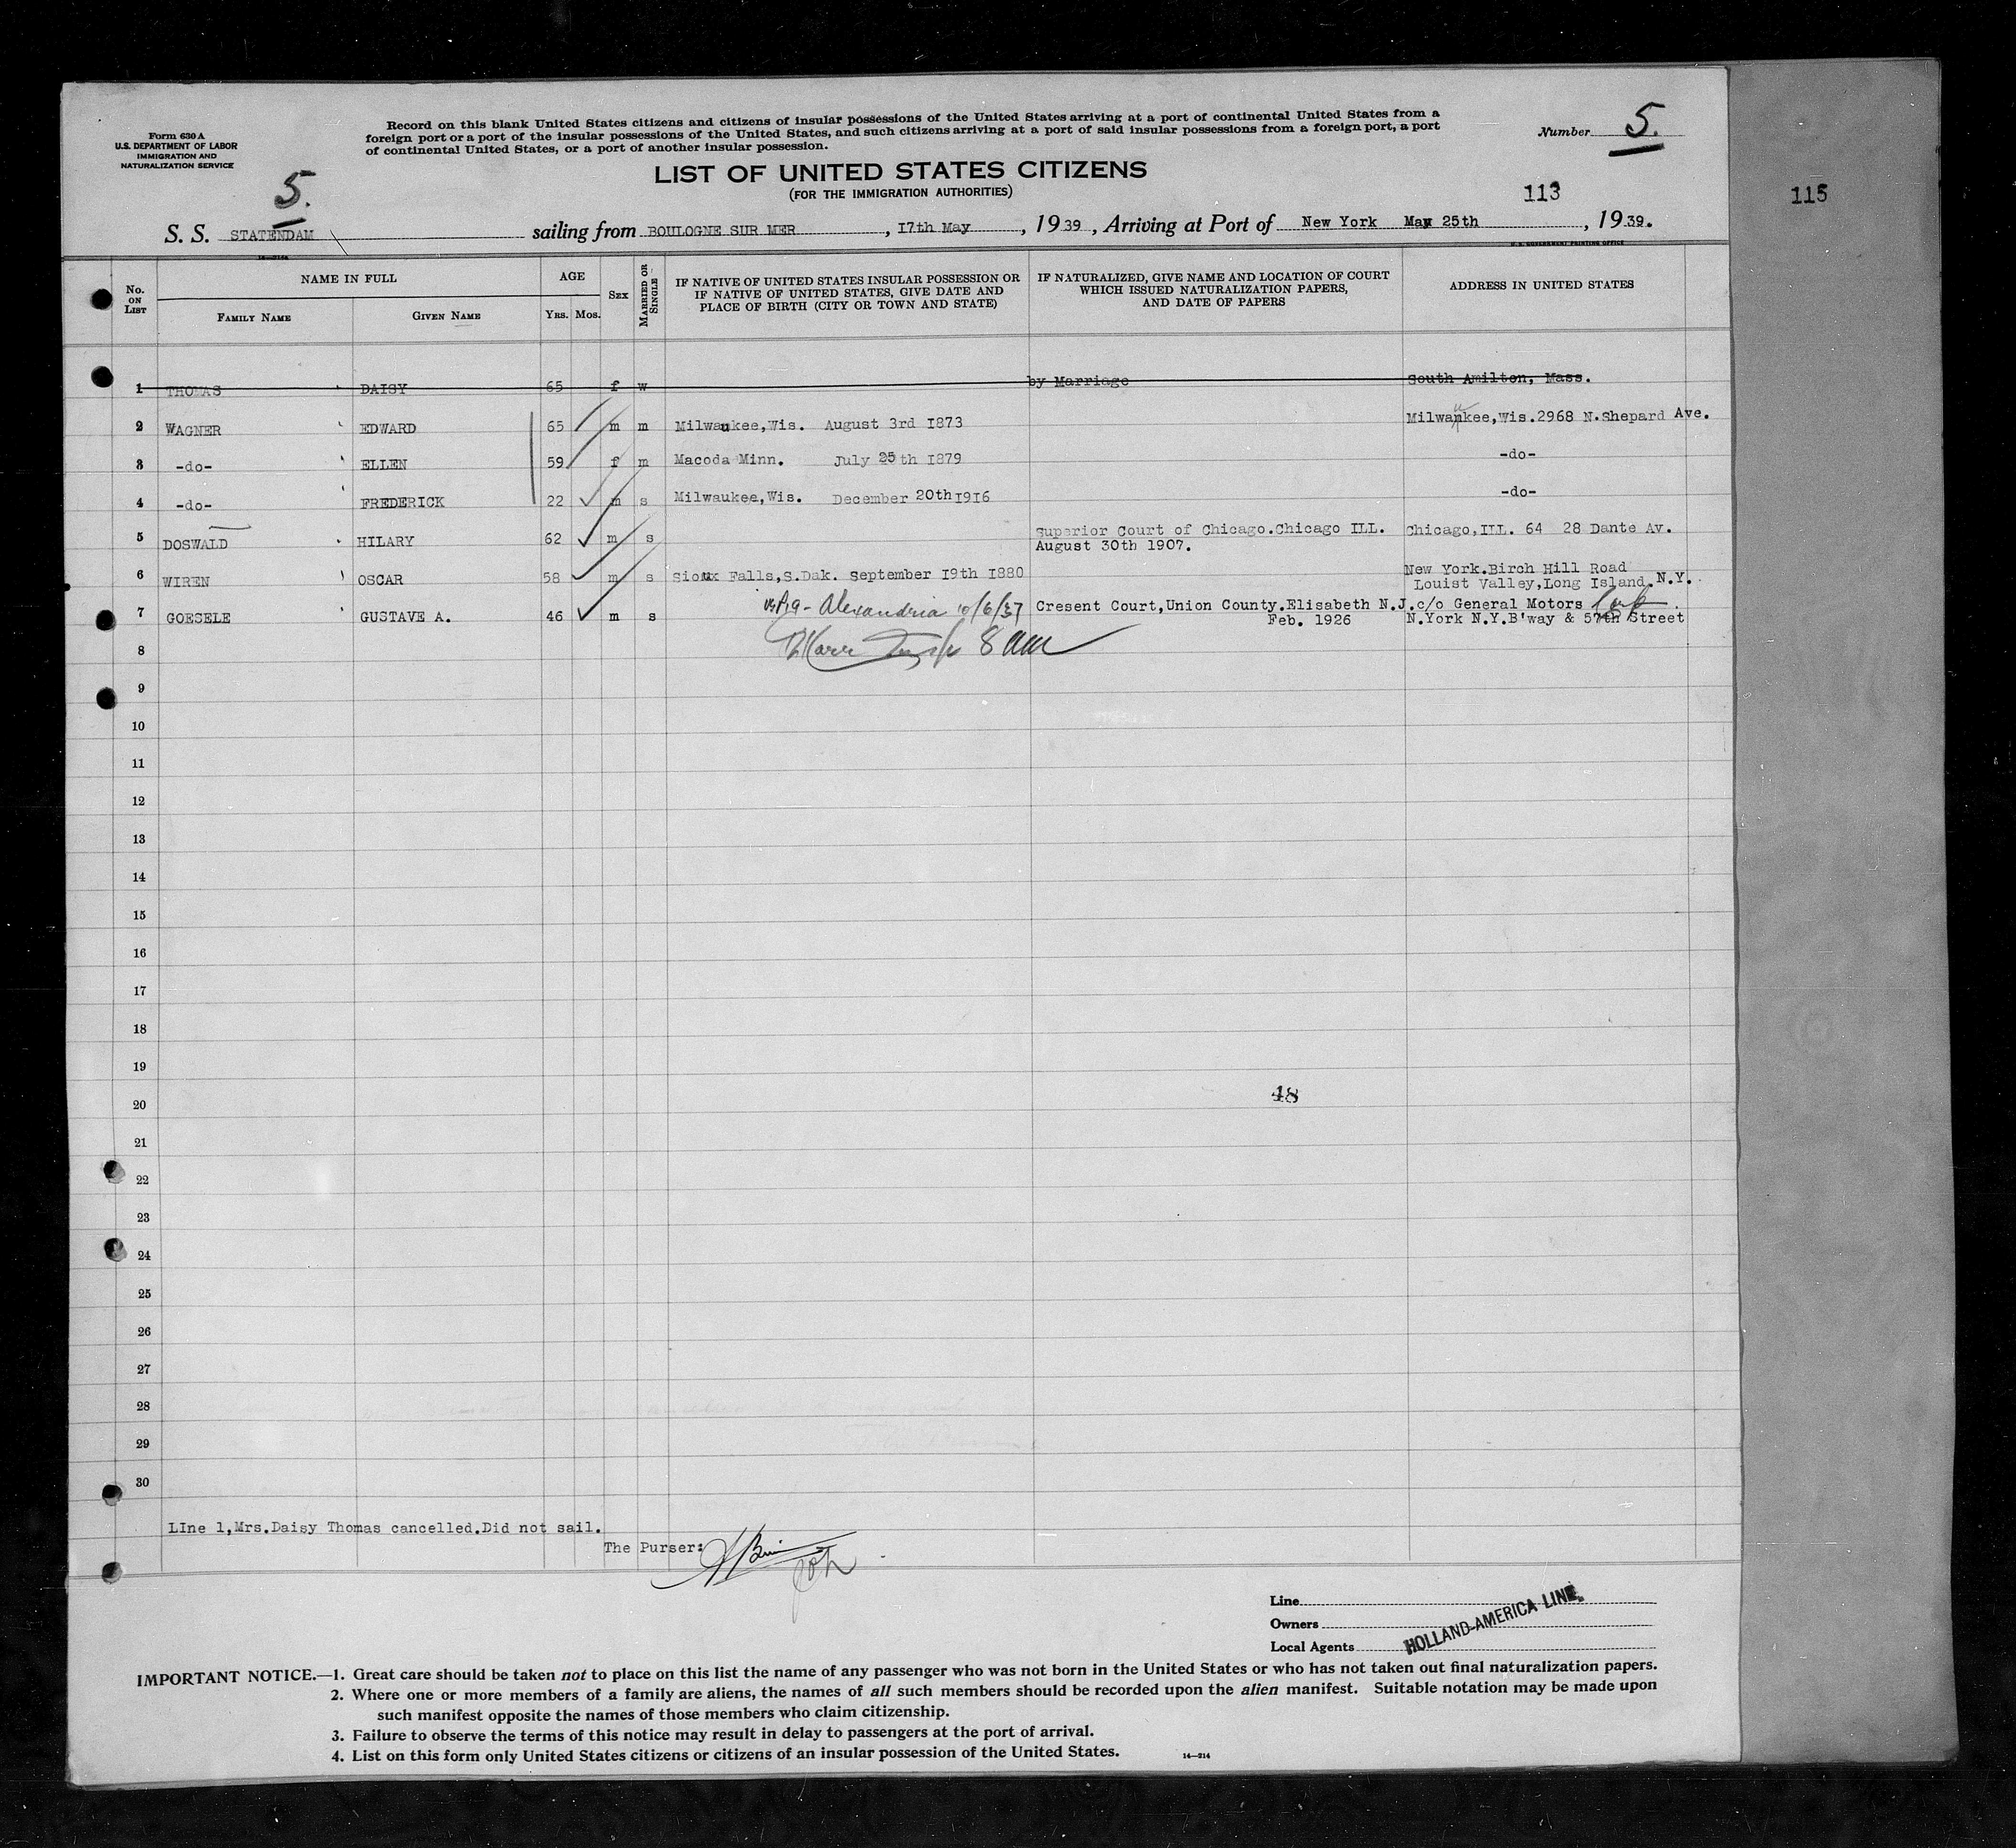 Form 630 A
U.S. DEPARTMENT OF LABOR
IMMIGRATION AND
NATURALIZATION SERVICE
Record on this blank United States citizens and citizens of insular possessions of the United States arriving at a port of continental United States from a
foreign port or a port of the insular possessions of the United States, and such citizens arriving at a port of said insular possessions from a foreign port, a port
of continental United States, or a port of another insular possession.
Number 5.
5.
LIST OF UNITED STATES CITIZENS
(FOR THE IMMIGRATION AUTHORITIES)
113
115
S. S. STATENDAM sailing from BOULOGNE SUR MER, I7th May, 1939, Arriving at Port of New York May 25th, 1939.
14—214
U. S. GOVERNMENT PRINTING OFFICE
No. ON LIST
NAME IN FULL
FAMILY NAME
GIVEN NAME
AGE
YRS. MOS.
SEX
MARRIED OR SINGLE
IF NATIVE OF UNITED STATES INSULAR POSSESSION OR
IF NATIVE OF UNITED STATES, GIVE DATE AND
PLACE OF BIRTH (CITY OR TOWN AND STATE)
IF NATURALIZED, GIVE NAME AND LOCATION OF COURT
WHICH ISSUED NATURALIZATION PAPERS,
AND DATE OF PAPERS
ADDRESS IN UNITED STATES
1 THOMAS DAISY 65 f w by Marriage South Amilton, Mass.
2 WAGNER EDWARD 65 m m Milwaukee,Wis. August 3rd I873 Milwaukee,Wis.2968 N.Shepard Ave.
3 -do- ELLEN 59 f m Macoda Minn. July 25th I879 -do-
4 -do- FREDERICK 22 m s Milwaukee,Wis. December 20thI9I6 -do-
5 DOSWALD HILARY 62 m s Superior Court of Chicago.Chicago ILL. Chicago,ILL. 64 28 Dante Av.
August 30th 1907.
6 WIREN OSCAR 58 m s Sioux Falls,S.Dak. September I9th I880 New York.Birch Hill Road
Louist Valley,Long Island.N.Y.
7 GOESELE GUSTAVE A. 46 m s Alexandria 10/6/37 Cresent Court,Union County.Elisabeth N.J. c/o General Motors
Feb. 1926 N.York N.Y.B'way & 57th Street
8
9
10
11
12
13
14
15
16
17
18
19
20
48
21
22
23
24
25
26
27
28
29
30
LIne 1,Mrs.Daisy Thomas cancelled.Did not sail.
The Purser:
Line
Owners
Local Agents
HOLLAND-AMERICA LINE.
IMPORTANT NOTICE.—1. Great care should be taken not to place on this list the name of any passenger who was not born in the United States or who has not taken out final naturalization papers.
2. Where one or more members of a family are aliens, the names of all such members should be recorded upon the alien manifest. Suitable notation may be made upon
such manifest opposite the names of those members who claim citizenship.
3. Failure to observe the terms of this notice may result in delay to passengers at the port of arrival.
4. List on this form only United States citizens or citizens of an insular possession of the United States.
14—214